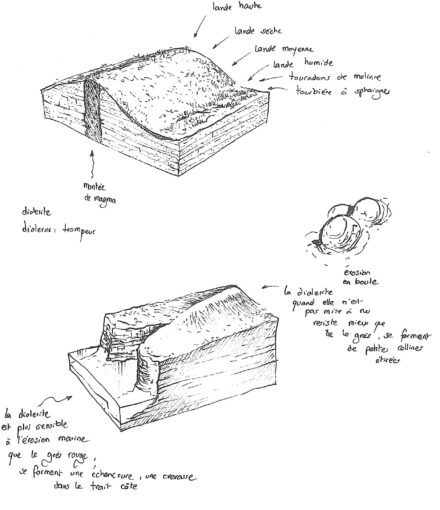 lande haute
lande sèche
lande moyenne
lande humide
touradons de molinie
tourbière à sphaignes
montée
de magma
dolerite
doleros : trompeur
érosion
en boule
la dolerite
quand elle n'est
pas mise à nu
resiste mieux que
le grès, se forment
de petites collines
étirées
la dolerite
est plus sensible
à l'érosion marine
que le grès rouge,
se forment une échancrure, une crevasse
dans le trait côte